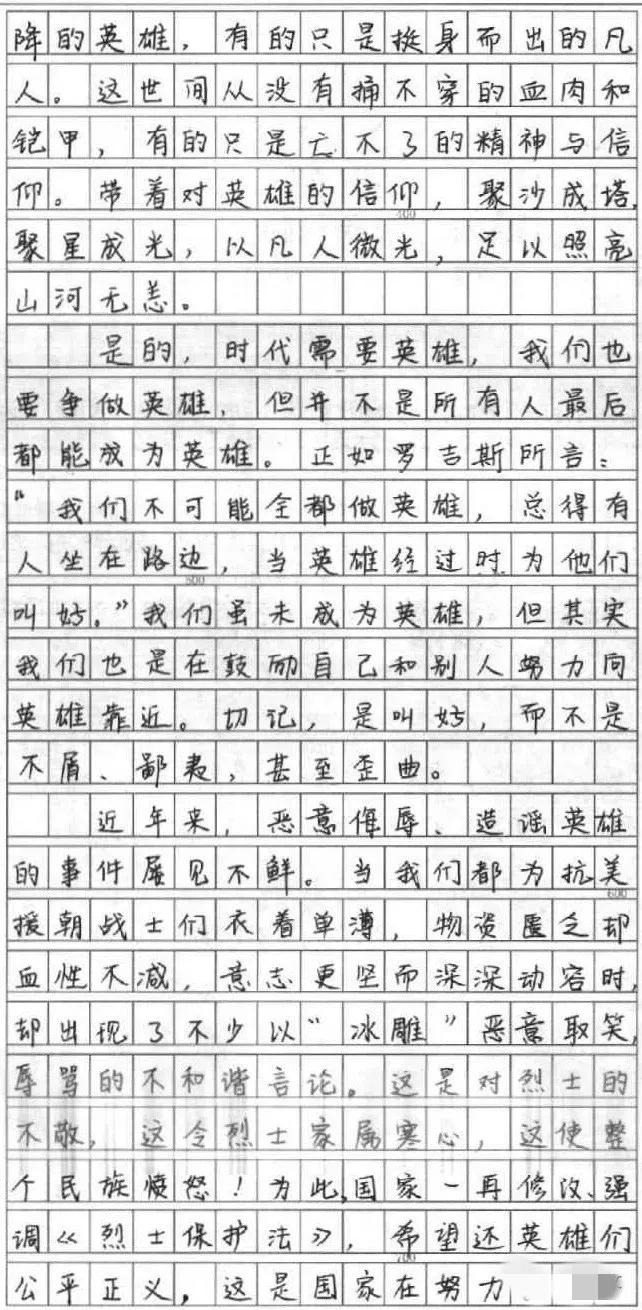 降的英雄，有的只是挺身而出的凡
人。这世间从没有捅不穿的血肉和
铠甲，有的只是亡不了的精神与信
仰。带着对英雄的信仰，聚沙成塔，
400
聚星成光，以凡人微光，足以照亮
山河无恙。
是的，时代需要英雄，我们也
要争做英雄，但并不是所有人最后
都能成为英雄。正如罗吉斯所言：
“我们不可能全都做英雄，总得有
人坐在路边，当英雄经过时为他们
500
叫好。”我们虽未成为英雄，但其实
我们也是在鼓励自己和别人努力向
英雄靠近。切记，是叫好，而不是
不屑、鄙夷，甚至歪曲。
近年来，恶意侮辱、造谣英雄
的事件屡见不鲜。当我们都为抗美
600
援朝战士们衣着单薄，物资匮乏却
血性不减，意志更坚而深深动容时，
却出现了不少以“冰雕”恶意取笑，
辱骂的不和谐言论。这是对烈士的
不敬，这令烈士家属寒心，这使整
个民族愤怒！为此，国家一再修改、强
调《烈士保护法》，希望还英雄们
700
公平正义，这是国家在努力